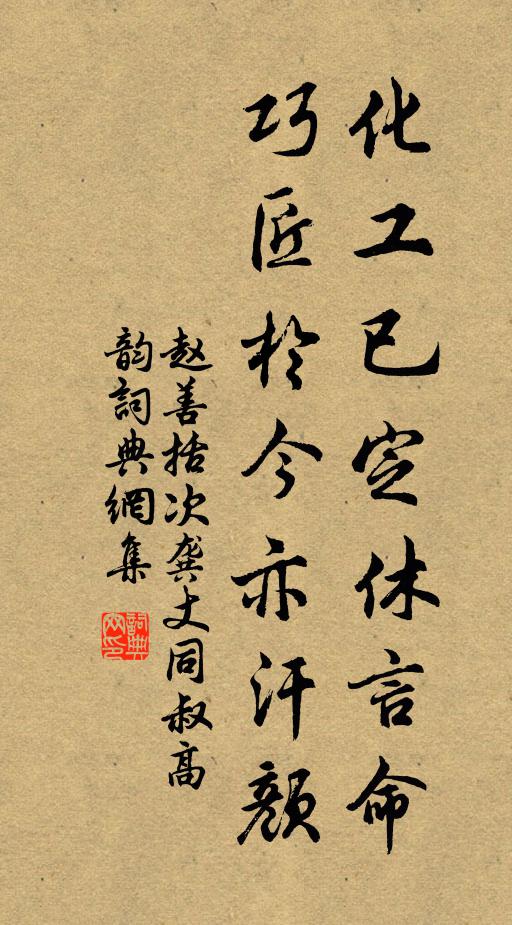 化工已定休言命
巧匠於今亦汗颜
赵善括次龚丈同叔高
韵詞典網集
詞典網印